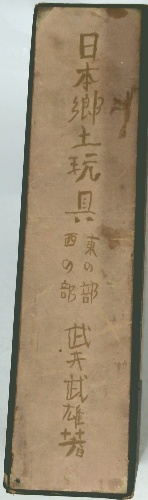 日本郷土玩具
東の部
西の部
武井武雄著